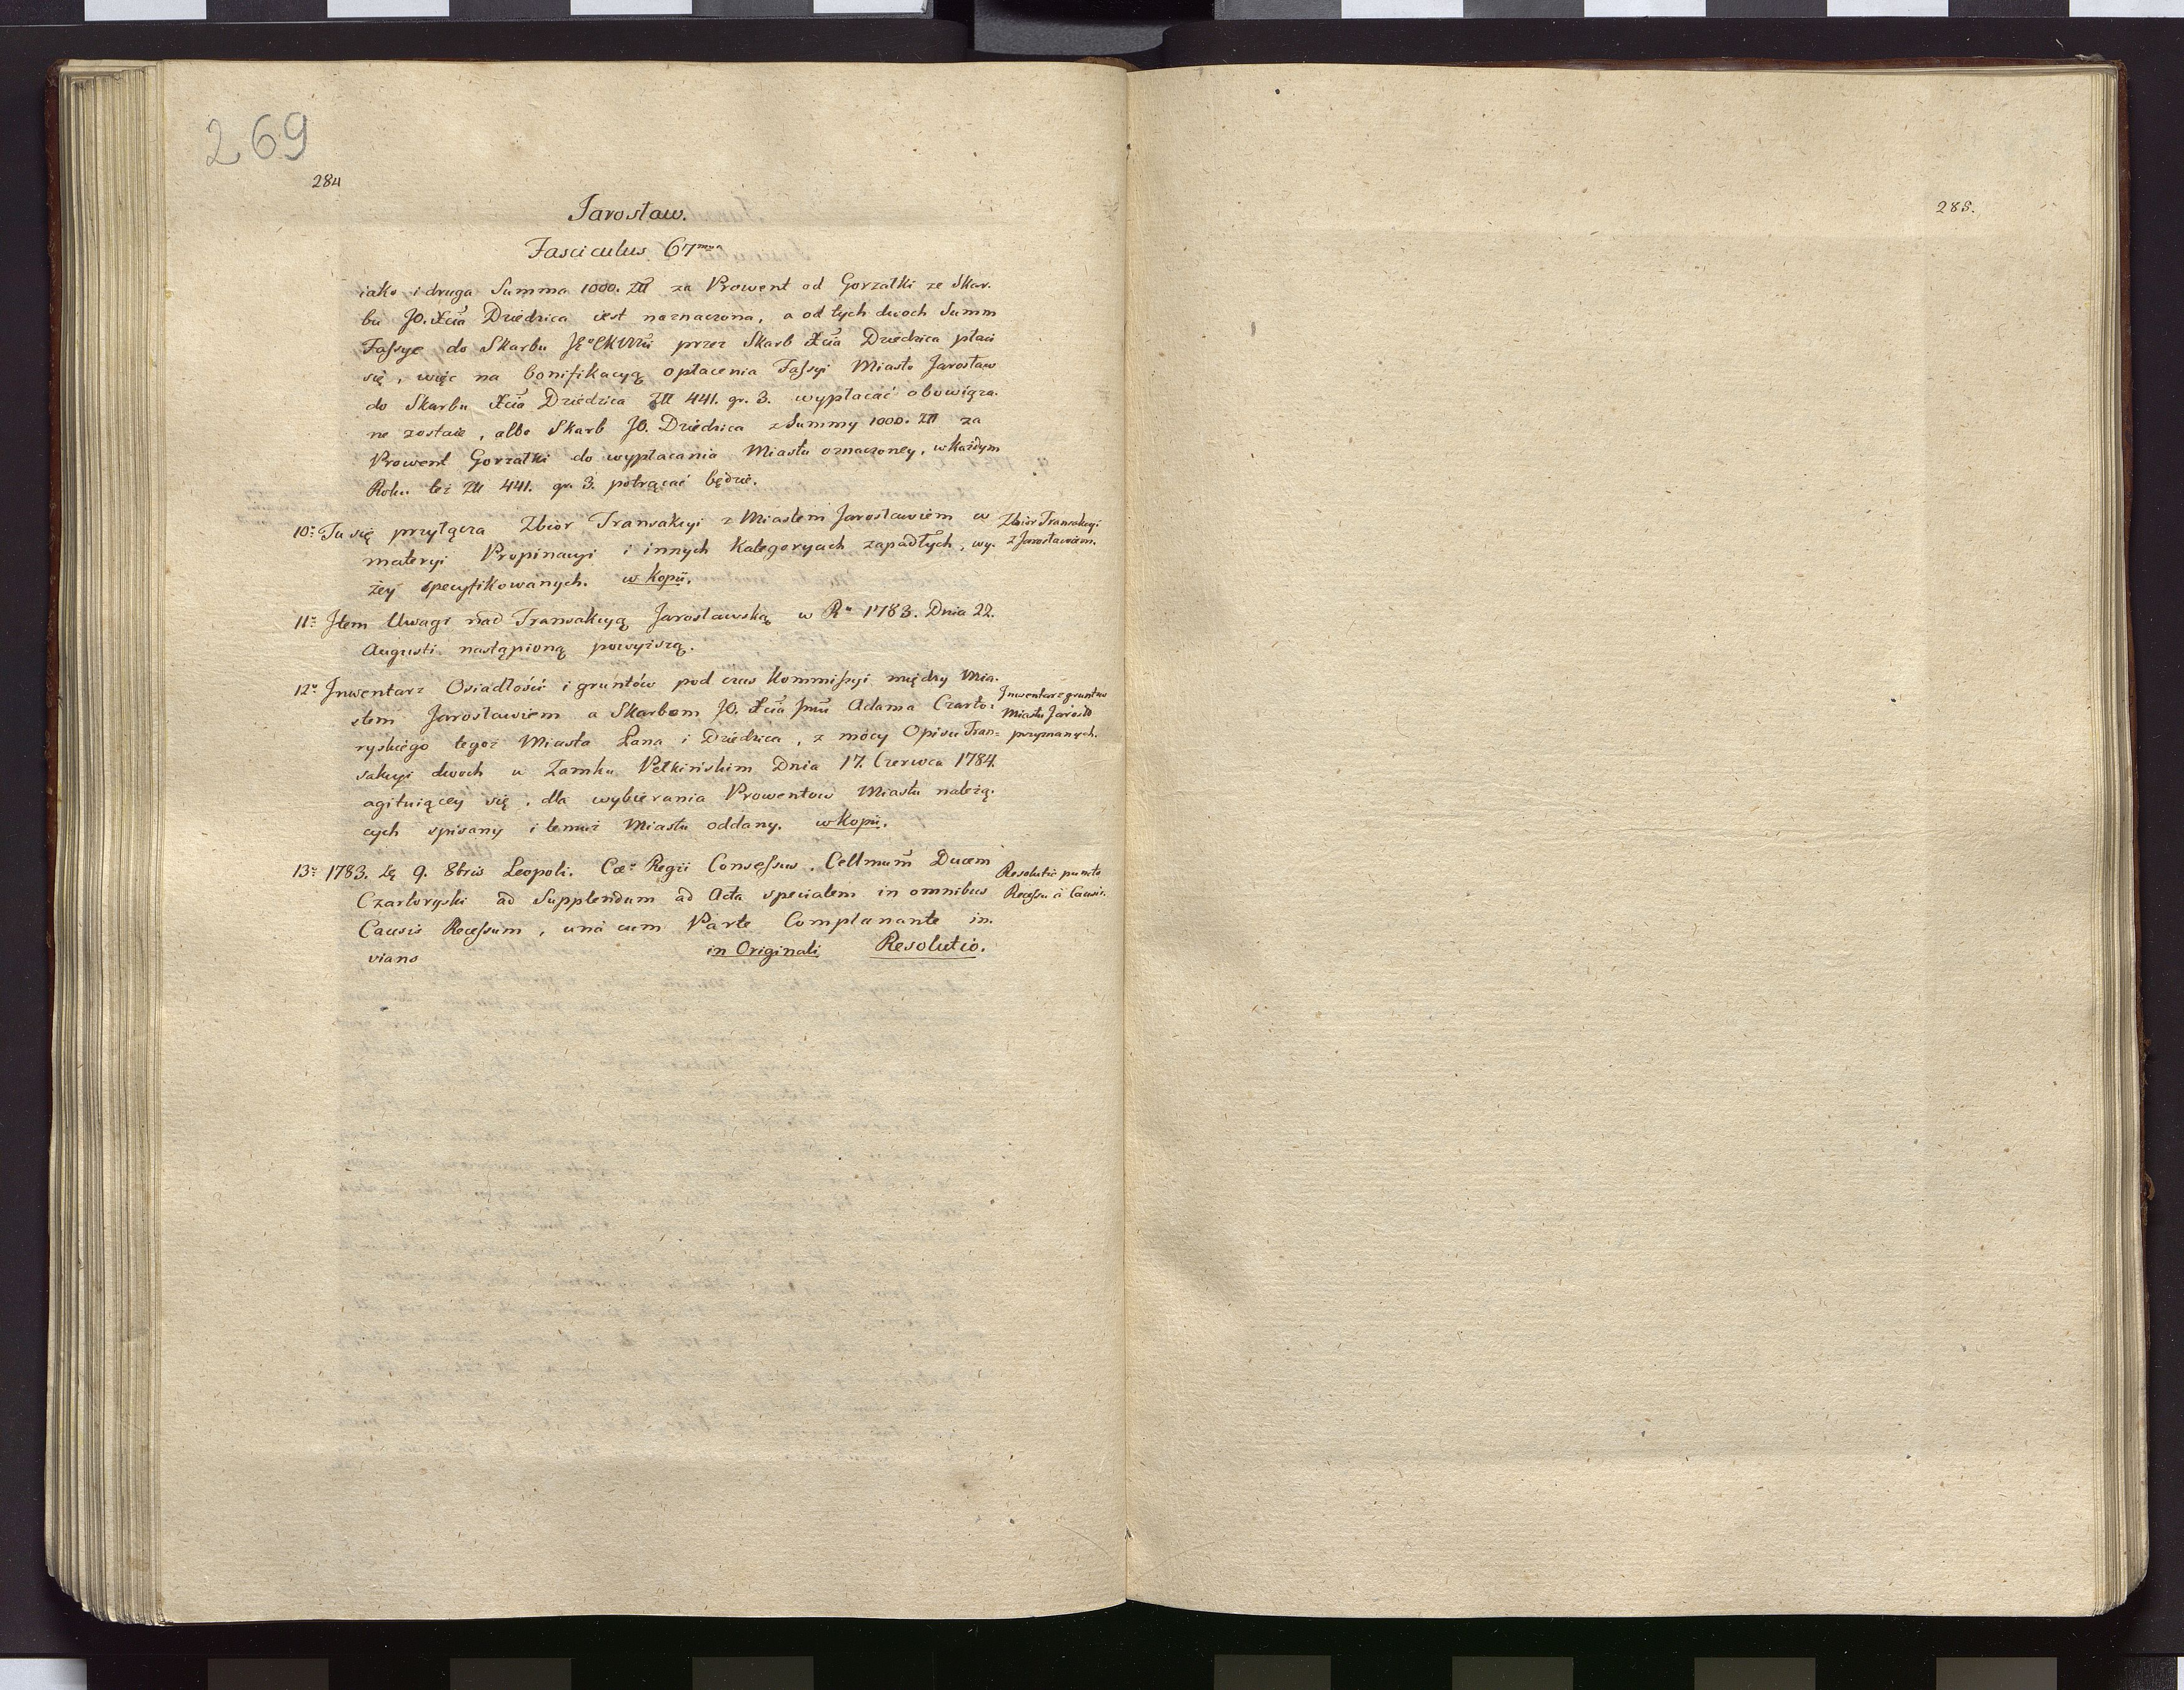 269
284
Jarosław.
Fasciculus 67mus
iako i druga Summa 1000. Złł za Prowent od Gorzałki ze Skar.
bu JO. Xcia Dziedzica iest naznaczona, a od tych dwoch Summ
Fassye do Skarbu przez Skarb Xcia Dziedzica płaci
się, więc na bonifikacyą opłacenia Fassyi Miasto Jarosław
do Skarbu Xcia Dziedzica Złł 441. gr. 3. wypłacać obowiąza.
ne zostaie, albo Skarb JO. Dziedzica z Summy 1000. Złł za
Prowent Gorzałki do wypłacania Miastu oznaczoney, w każdym
Roku też Złł 441. gr. 3. potrącać będzie.
10º Tu się przyłącza Zbior Transakcyi z Miastem Jarosławiem w
materyi Propinacyi i innych Kategoryach zapadłych, wy.
żey specyfikowanych. w Kopii.
Zbior Transakcyi
z Jarosławiem.
11º Item Uwagi nad Transakcyą Jarosławską w Ru 1783. Dnia 22.
Augusti nastąpioną powyższą.
12º Inwentarz Osiadłości i gruntów pod czas Kommissyi między Mia.
stem Jarosławiem a Skarbem JO. Xcia Jmci Adama Czarto:
ryskiego tegoż Miasta Pana i Dziedzica, z mocy Opisu Tran=
sakcyi dwoch w Zamku Pełkińskim Dnia 17. Czerwca 1784.
agituiącey się, dla wybierania Prowentow Miastu należą.
cych spisany i temuż Miastu oddany. w Kopii.
Inwentarz gruntow
Miastu Jarosło
przyznanych.
13º 1783. 9. 8bris Leopoli. Cæº Regii Consessus. Cellmum Ducem
Czartoryski ad Supplendum ad Acta specialem in omnibus
Causis Recessum, una cum Parte Complanante in.
viano in Originali Resolutio.
Resolutio puncto
Recessu i Causis.
285.